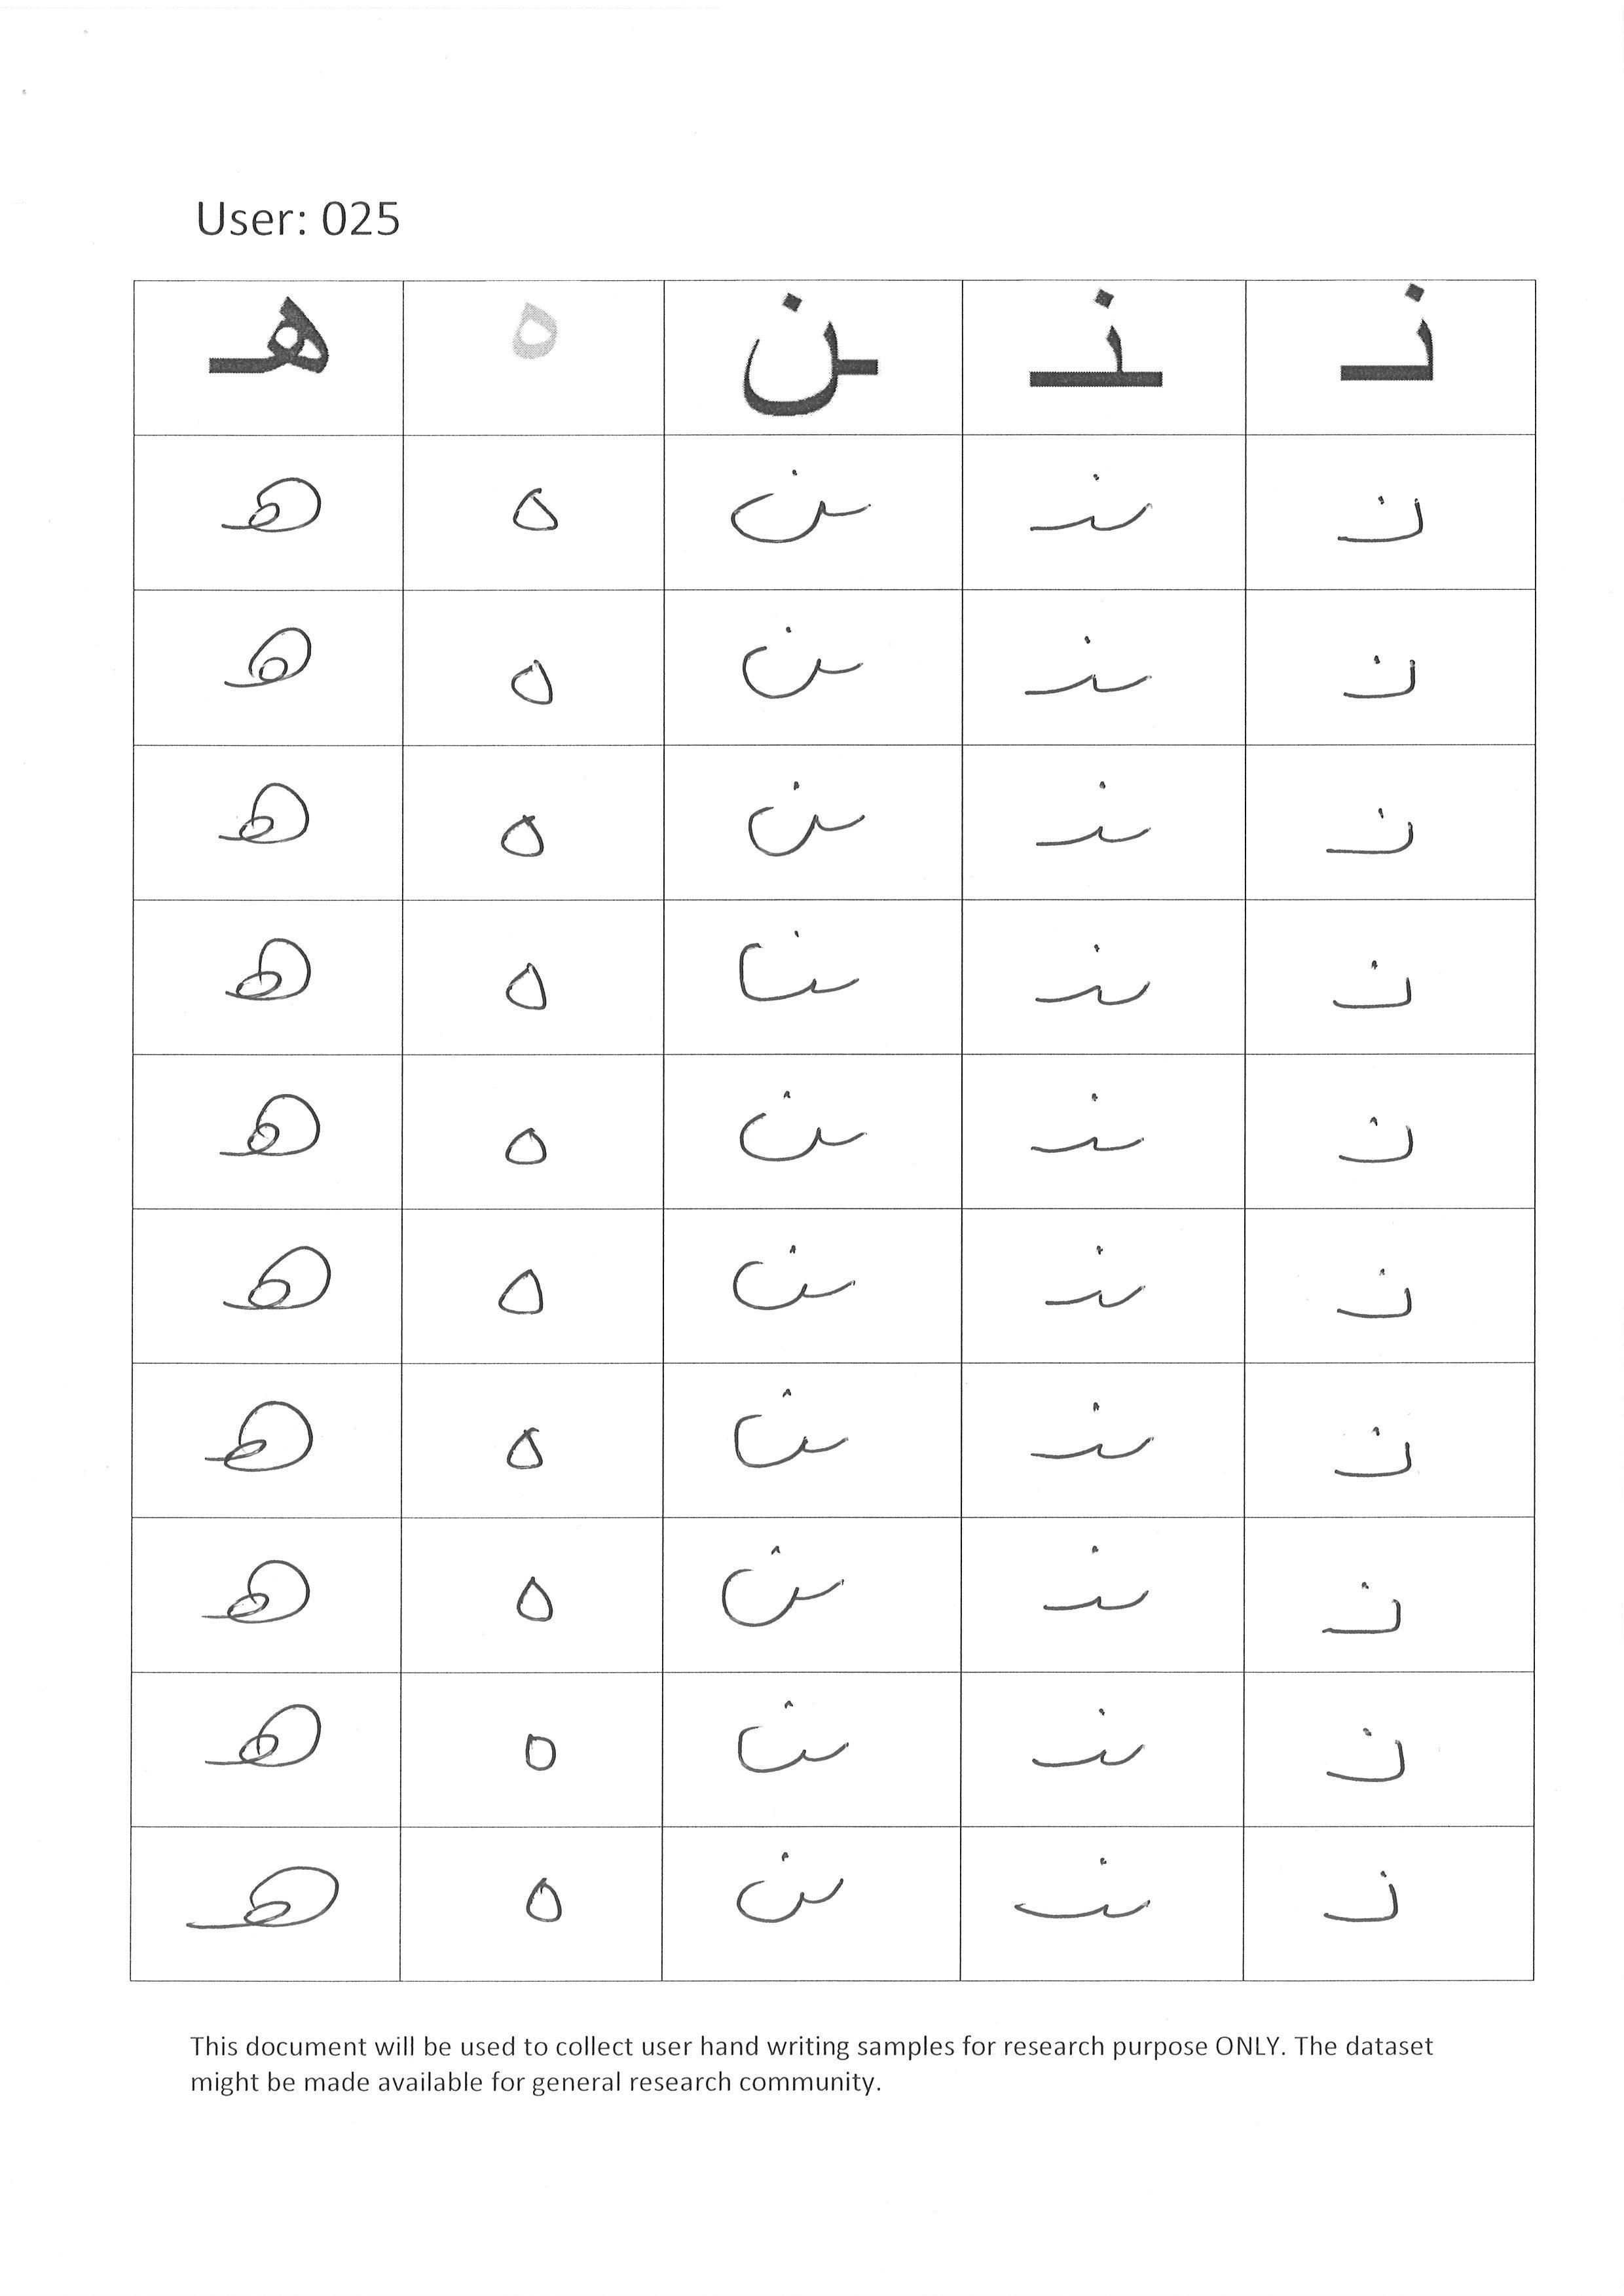 User: 025
نـ ـنـ ـن ه هـ
نـ ـنـ ـن ه هـ
نـ ـنـ ـن ه هـ
نـ ـنـ ـن ه هـ
نـ ـنـ ـن ه هـ
نـ ـنـ ـن ه هـ
نـ ـنـ ـن ه هـ
نـ ـنـ ـن ه هـ
نـ ـنـ ـن ه هـ
نـ ـنـ ـن ه هـ
نـ ـنـ ـن ه هـ
This document will be used to collect user hand writing samples for research purpose ONLY. The dataset
might be made available for general research community.